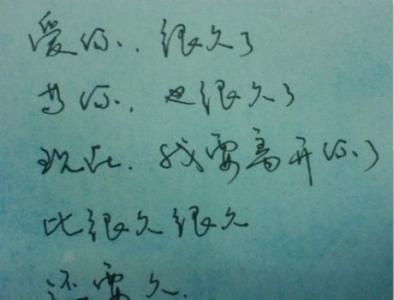 爱你，很久了
等你，也很久了
现在，我要离开你了
比很久很久
还要久。